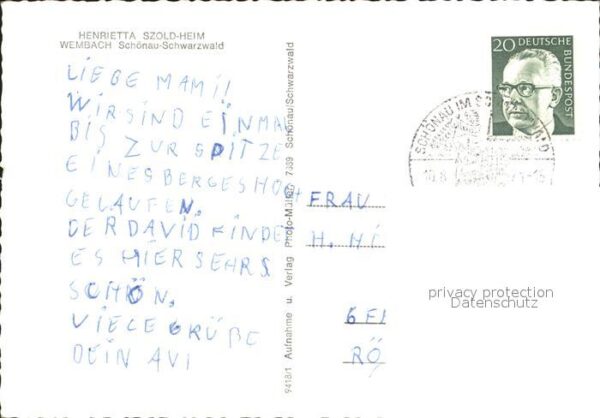 HENRIETTA SZOLD-HEIM
WEMBACH Schönau-Schwarzwald
LIEBE MAMI!
WIR SIND EINMAL
BIS ZUR SPITZE
EINES BERGES HOCH
GELAUFEN.
DER DAVID FINDET
ES HIER SEHR S
SCHÖN.
VIELE GRÜßE
DEIN AVI
9418/1 Aufnahme u. Verlag Photo-Müller, 7869 Schönau/Schwarzwald
20 DEUTSCHE
BUNDESPOST
SCHÖNAU IM
FRAU
H. HI
6 F
RÖ
privacy protection
Datenschutz